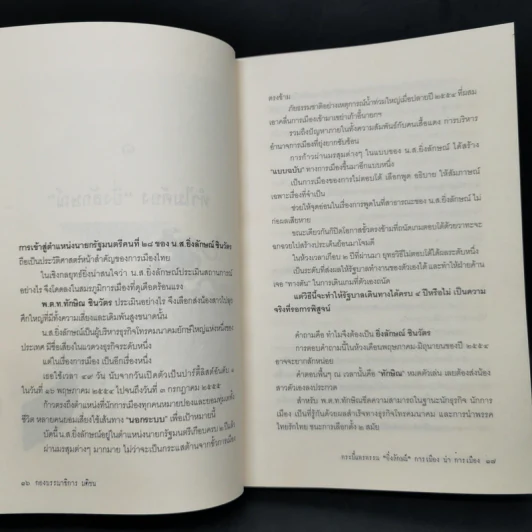 การเข้าสู่ตำแหน่งนายกรัฐมนตรีคนที่ ๒๘ ของ น.ส.ยิ่งลักษณ์ ชินวัตร
ถือเป็นประวัติศาสตร์หน้าสำคัญของการเมืองไทย
ในเชิงกลยุทธ์ยิ่งน่าสนใจว่า น.ส.ยิ่งลักษณ์ประเมินสถานการณ์
อย่างไร จึงโดดลงในสมรภูมิการเมืองที่ดุเดือดร้อนแรง
พ.ต.ท.ทักษิณ ชินวัตร ประเมินอย่างไร จึงเลือกส่งน้องสาวไปลุย
ศึกใหญ่ที่มีทั้งความเสี่ยงและเดิมพันสูงขนาดนั้น
น.ส.ยิ่งลักษณ์เป็นผู้บริหารธุรกิจโทรคมนาคมยักษ์ใหญ่แห่งหนึ่งของ
ประเทศ มีชื่อเสียงในแวดวงธุรกิจระดับหนึ่ง
แต่ในเรื่องการเมือง เป็นอีกเรื่องหนึ่ง
เธอใช้เวลา ๔๙ วัน นับจากวันเปิดตัวเป็นปาร์ตี้ลิสต์อันดับ ๑
ในวันที่ ๑๖ พฤษภาคม ๒๕๕๔ ไปจนถึงวันที่ ๓ กรกฎาคม ๒๕๕๔
ก้าวตรงถึงตำแหน่งที่นักการเมืองทุกคนหมายปองและยอมทุ่มเททั้ง
ชีวิต หลายคนยอมเสี่ยงใช้เส้นทาง "นอกระบบ" เพื่อเป้าหมายนี้
บัดนี้ น.ส.ยิ่งลักษณ์อยู่ในตำแหน่งนายกรัฐมนตรีเกือบครบ ๒ ปีแล้ว
ผ่านมรสุมต่างๆ มากมาย ไม่ว่าจะเป็นกระแสต่อต้านจากขั้วการเมือง
๑๖ กองบรรณาธิการ มติชน
ตรงข้าม
ภัยธรรมชาติอย่างเหตุการณ์น้ำท่วมใหญ่เมื่อปลายปี ๒๕๕๔ ที่ผสม
เอาคลื่นการเมืองเข้ามาเขย่าเก้าอี้นายกฯ
รวมถึงปัญหาภายในทั้งความสัมพันธ์กับคนเสื้อแดง การบริหาร
อำนาจการเมืองที่ยุ่งยากซับซ้อน
การก้าวผ่านมรสุมต่างๆ ในแบบของ น.ส.ยิ่งลักษณ์ ได้สร้าง
"แบบฉบับ" ทางการเมืองขึ้นมาอีกแบบหนึ่ง
เป็นการเมืองของการไม่ตอบโต้ เลือกพูด อธิบาย ให้สัมภาษณ์
เฉพาะเรื่องที่จำเป็น
ช่วยให้จุดอ่อนในเรื่องการพูดในที่สาธารณะของ น.ส.ยิ่งลักษณ์ ไม่
ก่อผลเสียหาย
ขณะเดียวกันก็ปิดโอกาสขั้วตรงข้ามที่ถนัดเกมตอบโต้ด้วยวาทะจะ
ฉกฉวยไปสร้างประเด็นย้อนมาโจมตี
ในห้วงเวลาเกือบ ๒ ปีที่ผ่านมา ยุทธวิธีไม่ตอบโต้ได้ผลระดับหนึ่ง
เป็นระดับที่ส่งผลให้รัฐบาลทำงานของตัวเองได้ และทำให้ฝ่ายค้าน
เจอ "ทางตัน" ในการเดินเกมที่ตัวเองถนัด
แต่วิธีนี้จะทำให้รัฐบาลเดินทางได้ครบ ๔ ปีหรือไม่ เป็นความ
จริงที่รอการพิสูจน์
คำถามคือ ทำไมจึงต้องเป็น ยิ่งลักษณ์ ชินวัตร
การตอบคำถามนี้ในห้วงเดือนพฤษภาคม-มิถุนายนของปี ๒๕๕๔
อาจจะยากสักหน่อย
คำตอบสั้นๆ ณ เวลานั้นคือ "ทักษิณ" หมดตัวเล่น เลยต้องส่งน้อง
สาวตัวเองลงประกวด
สำหรับ พ.ต.ท.ทักษิณขีดความสามารถในฐานะนักธุรกิจ นักการ
เมือง เป็นที่รู้กันด้วยผลสำเร็จทางธุรกิจโทรคมนาคม และการนำพรรค
ไทยรักไทย ชนะการเลือกตั้ง ๒ สมัย
"ยิ่งลักษณ์" การเมือง การเมือง ๑๗